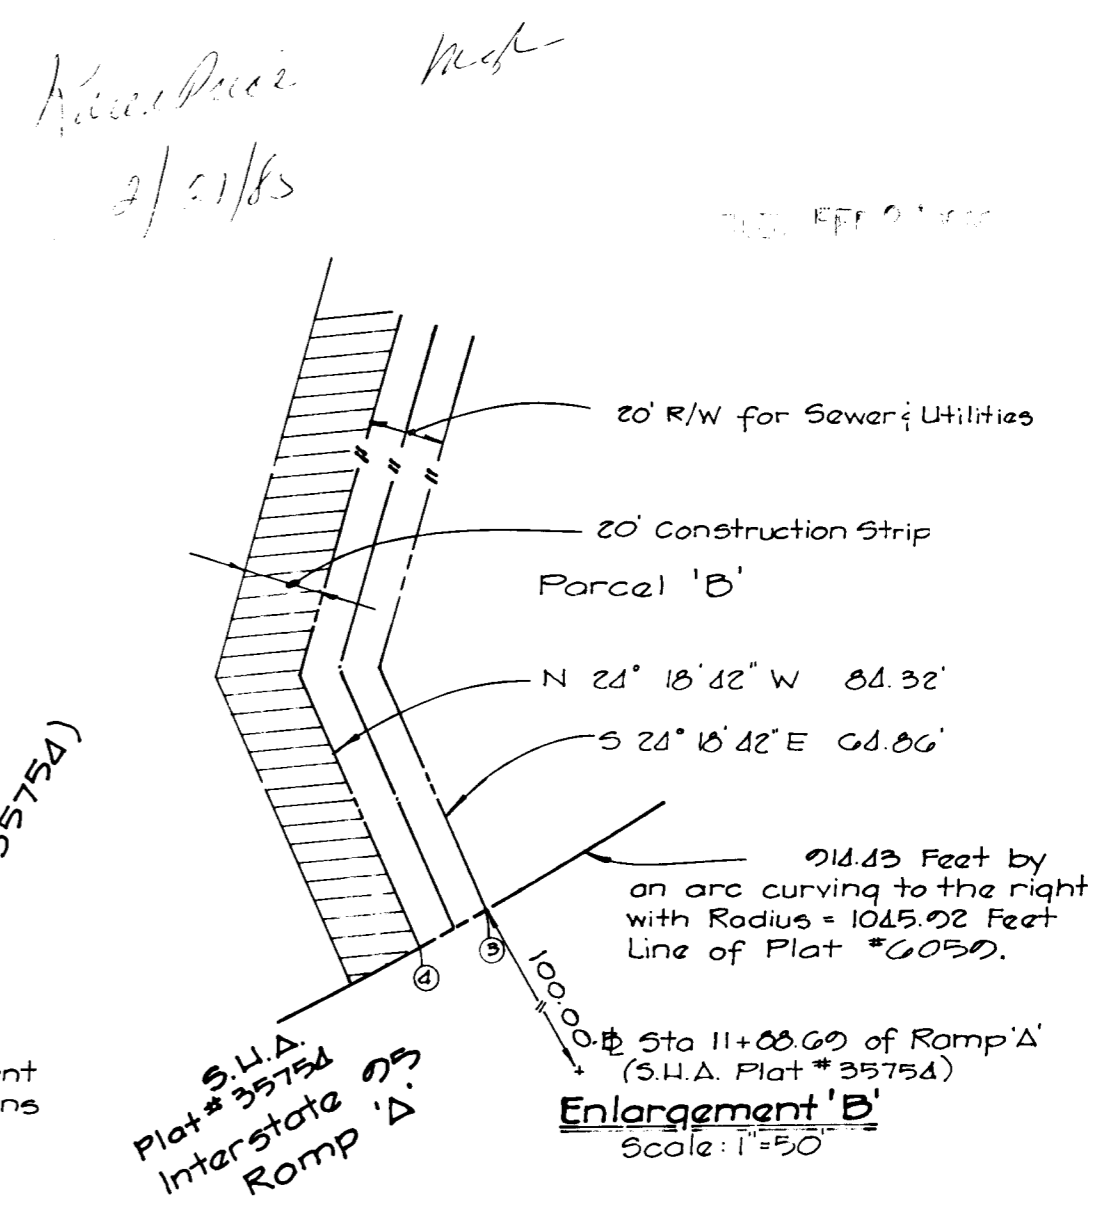 20' R/W for Sewer & Utilities
20' Construction Strip
Parcel 'B'
N 24° 18' 42" W 84.32'
S 24° 18' 42" E 64.86'
914.43 Feet by
an arc curving to the right
with Radius = 1045.92 Feet
Line of Plat #6059.
3
4
100.00
35754)
℄ Sta 11+88.69 of Ramp 'A'
(S.H.A. Plat #35754)
S.H.A.
Plat #35754
Interstate 95
Ramp 'A'
nt
ns
Enlargement 'B'
Scale: 1"=50'